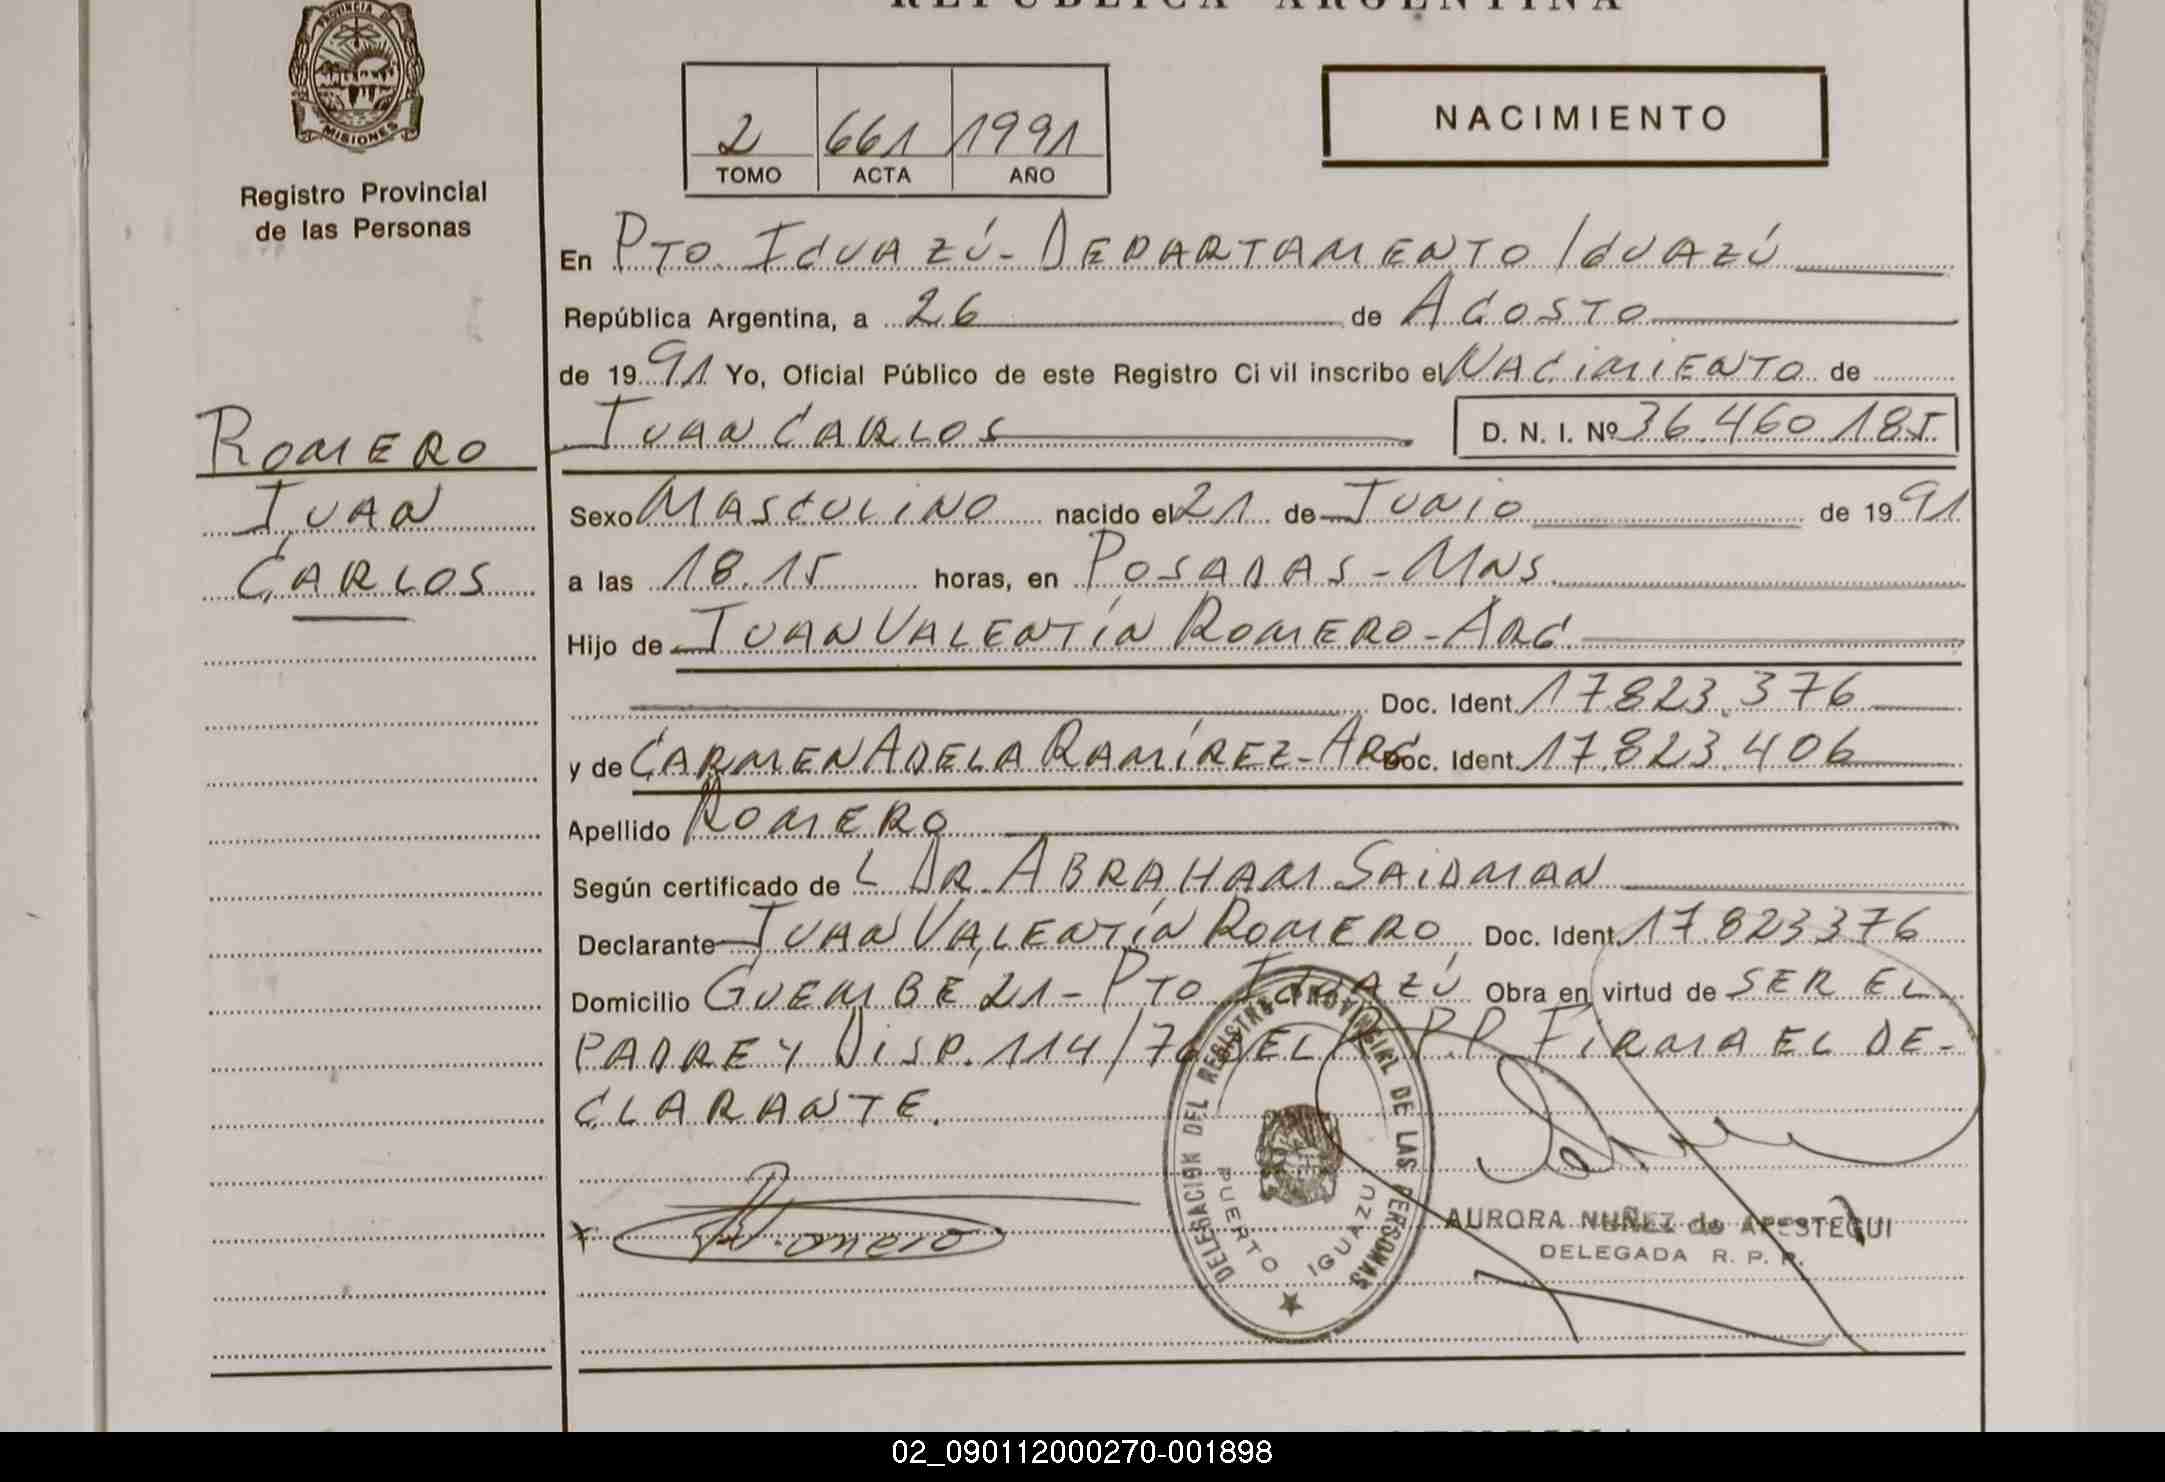 REPUBLICA ARGENTINA
PROVINCIA DE
MISIONES
Registro Provincial
de las Personas
2 661 1991
TOMO ACTA AÑO
NACIMIENTO
En PTO. IGUAZÚ - DEPARTAMENTO IGUAZÚ
República Argentina, a 26 de AGOSTO
de 1991 Yo, Oficial Público de este Registro Civil inscribo el NACIMIENTO de
JUAN CARLOS D. N. I. Nº 36.460.185
ROMERO
JUAN
CARLOS
Sexo MASCULINO nacido el 21 de JUNIO de 1991
a las 18.15 horas, en POSADAS - MNS.
Hijo de JUAN VALENTÍN ROMERO - ARG.
Doc. Ident. 17.823.376
y de CARMEN ADELA RAMÍREZ - ARG Doc. Ident. 17.823.406
Apellido ROMERO
Según certificado de L DR. ABRAHAM SAIDMAN
Declarante JUAN VALENTÍN ROMERO Doc. Ident. 17.823376
Domicilio GUEMBÉ 21 - PTO IGUAZÚ Obra en virtud de SER EL
PADRE Y DISP. 114/76 DEL R.P.P. FIRMA EL DE-
CLARANTE.
DELEGACION DEL REGISTRO PROVINCIAL DE LAS PERSONAS
PUERTO IGUAZU
Romero
AURORA NUÑEZ de APESTEGUI
DELEGADA R. P. P.
02_090112000270-001898